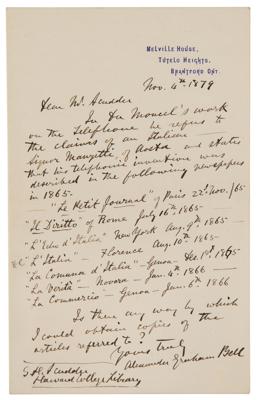 MELVILLE HOUSE,
TUTELO HEIGHTS,
BRANTFORD ONT.
Nov. 4th 1879
Dear Mr. Scudder
In Du Moncel's work
on the Telephone he refers to
the claims of an Italian —
Signor Manzetti of Aosta and states
that his telephonic invention was
described in the following newspapers
in 1865.
"Le Petit Journal" of Paris 22d Nov. /65
"Il Diritto" of Rome July 16th 1865-
"L'Eco d'Italia" New York Aug. 9th 1865-
"L'Italia" — Florence Aug. 10th 1865-
"La Comuna d'Italia" - Genoa - Dec. 1st 1865
"La Verità" - Novara - Jan. 4th 1866 —
"La Commercio" - Genoa - Jan. 6th 1866
Is there any way by which
I could obtain copies of the
articles referred to?
Yours truly
Alexander Graham Bell
S. H. Scudder
Harvard College Library